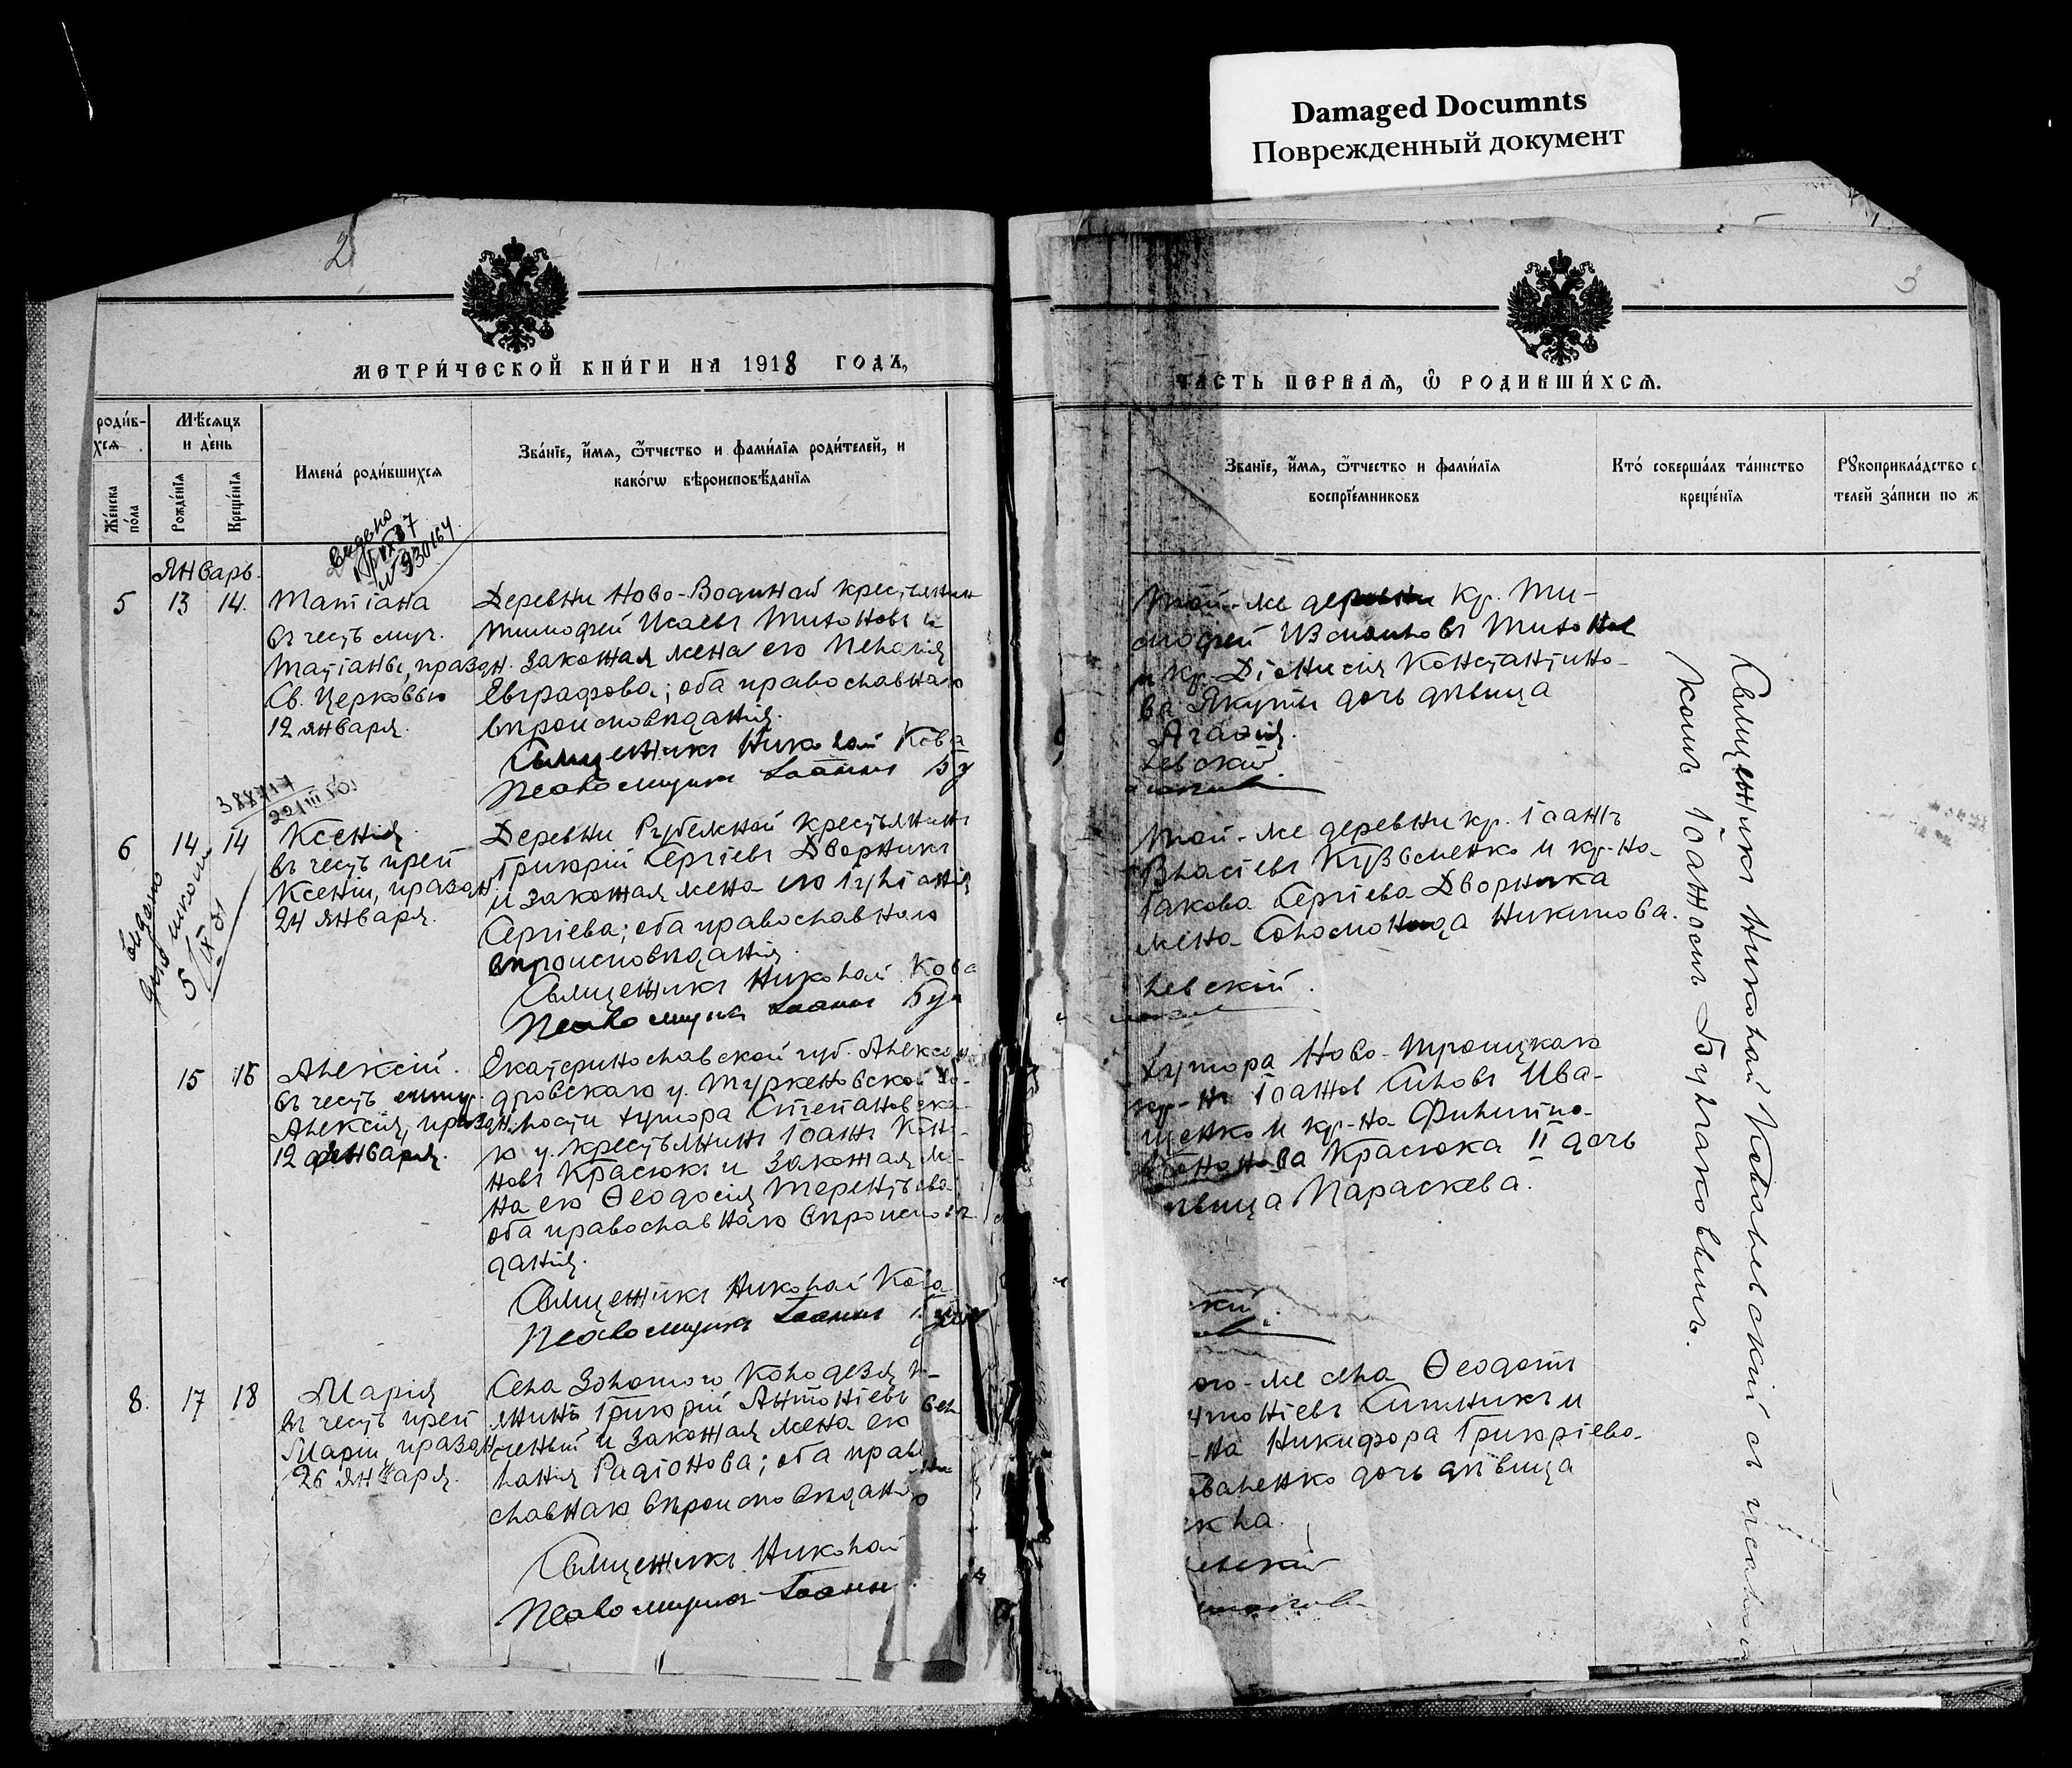 Damaged Documnts
Поврежденный документ
2
МЕТРИ́ЧЕСКОЙ КНИ́ГИ НА 1918 ГОДЪ,
роди́в-
хся
Мѣ́сяцъ
и де́нь
Же́нска
по́ла
Рожде́нїя
Креще́нїя
Имена̀ роди́вшихся
Зва́нїе, и́мя, ѻ҆́тчество и фами́лїя роди́телей, и
како́гѡ вѣроисповѣ́данїя
Видено
Январь.
5 13 14.
Татіана
въ честь муч.
Татіаны, праздн.
Св. Церковью
12 января.
Деревни Ново-Водяной крестьянин
Тимофей Исаевъ Титовъ и
законная жена его Пелагія
Евграфова; оба православнаго
вѣроисповѣданія.
Священникъ Николай Кова
Псаломщикъ Іоаннъ Бу
6 14 14
Ксенія
въ честь преп
Ксеніи, праздн
24 января.
Деревни Рубежной крестьянинъ
Григорій Сергіевъ Дворникъ
и законная жена его Іуліанія
Сергіева; оба православнаго
вѣроисповѣданія.
Священникъ Николай Кова
Псаломщикъ Іоаннъ Бул
15 16
Алексій.
въ честь
Алексія, праздн
12 февраля.
Екатеринославской губ. Алексан
дровскаго у. Туркеновской во-
лости хутора Степановска-
го у. крестьянинъ Іоаннъ Коно-
новъ Красюкъ и законная же-
на его Ѳеодосія Терентьева
оба православнаго вѣроисповѣ
данія.
Священникъ Николай Кова
Псаломщикъ Іоаннъ
8. 17 18
Марія
въ честь преп
Маріи, праздн
26 января.
Села Золотого Колодезя к-
янинъ Григорій Антоніевъ
и законная жена его
лагія Радіонова; оба право
славнаго вѣроисповѣданія
Священникъ Николай
Псаломщикъ Іоаннъ
3
ЧАСТЬ ПЕРВАЯ, Ѡ҆ РОДИВШИ́ХСЯ.
Зва́нїе, и́мя, ѻ҆́тчество и фами́лїя
воспрїе́мниковъ
Кто̀ соверша́лъ та́инство
креще́нїя
Рꙋкоприкла́дство с
телей за́писи по ж
Той-же деревни кр. Ти-
мофей Титов
и кр. Діонисія Константино-
ва Якуты дочь дѣвица
Агафія.
левскій
Той-же деревни кр. Іоаннъ
Власіевъ Кузьменко и кр-на
Іакова Сергіева Дворника
жена Соломонида Никитова.
левскій.
хутора Ново-Троицкаго
кр-нъ Іоаннъ Силовъ Ива-
щенко и кр-на Филиппо-
Кононова Красюка II дочь
дѣвица Параскева.
кій.
ого-же села Ѳеодотъ
нтоніевъ Ситникъ и
-на Никифора Григоріева-
валенко дочь дѣвица
екла.
левскій
Священникъ Николай Ковалевскій съ псалом
комъ Іоанномъ Булгаковымъ.